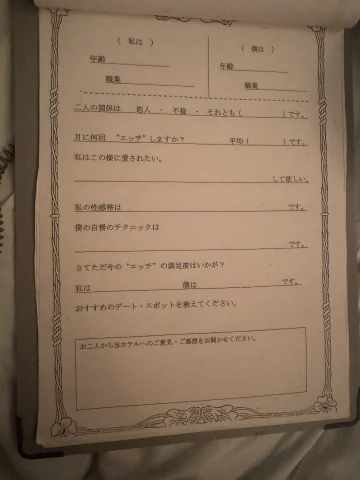 （　私は　）　　（　僕は　）
年齢　　年齢
職業　　職業
二人の関係は　恋人　・　不倫　・　それとも（　　　　）です。
月に何回　“エッチ”しますか？　　平均（　　　　）です。
私はこの様に愛されたい。
して欲しい。
私の性感帯は　　　　です。
僕の自慢のテクニックは
です。
さてただ今の“エッチ”の満足度はいかが？
私は　　　　僕は　　　　です。
おすすめのデート・スポットを教えてください。
お二人から当ホテルへのご意見・ご感想をお聞かせください。